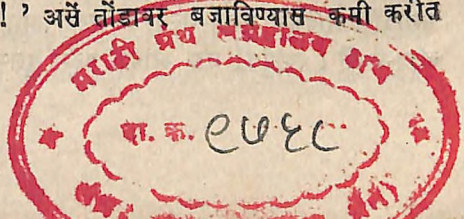 ! ’ असें तोंडावर बजाविण्यास कमी करीत
मराठी ग्रंथ संग्रहालय ठाणे
दा. क्र. ९७६८